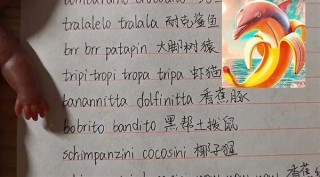 tralalelo tralala 耐克鲨鱼
brr brr patapin 大脚树猿
tripi tropi tropa tripa 虾猫
banannitta dolfinitta 香蕉豚
bobrito bandito 黑帮土拨鼠
schimpanzini cocosini 椰子猩